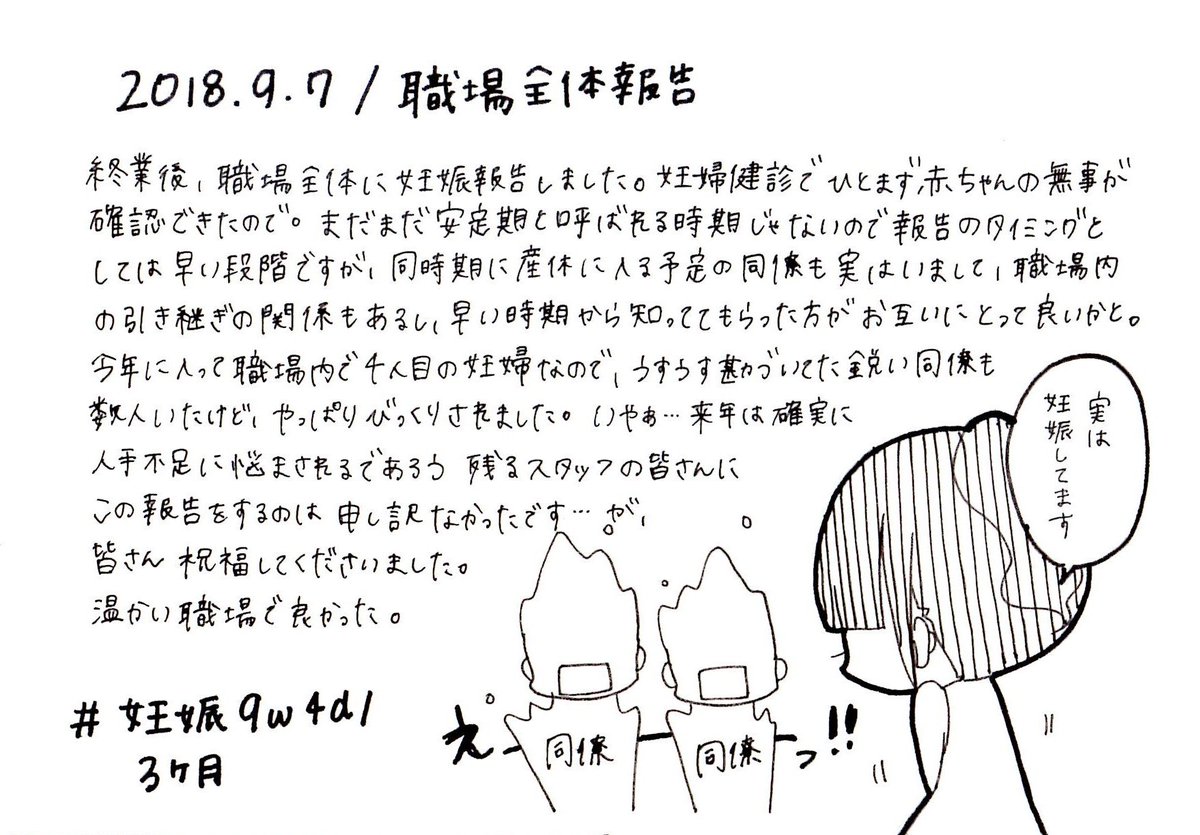 2018.9.7/職場全体報告
終業後、職場全体に妊娠報告しました。妊婦健診でひとまず、赤ちゃんの無事が
確認できたので。まだまだ安定期と呼ばれる時期じゃないので報告のタイミングと
しては早い段階ですが、同時期に産休に入る予定の同僚も実はいまして、職場内
の引き継ぎの関係もあるし、早い時期から知っててもらった方がお互いにとって良いかと。
今年に入って職場内で4人目の妊婦なので、うすうす勘づいてた鋭い同僚も
数人いたけど、やっぱりびっくりされました。いやぁ…来年は確実に
人手不足に悩まされるであろう残るスタッフの皆さんに
この報告をするのは申し訳なかったです…が、
皆さん祝福してくださいました。
温かい職場で良かった。
実は
妊娠してます
えーーーっ!!
同僚
同僚
#妊娠9w4d/
3ヶ月